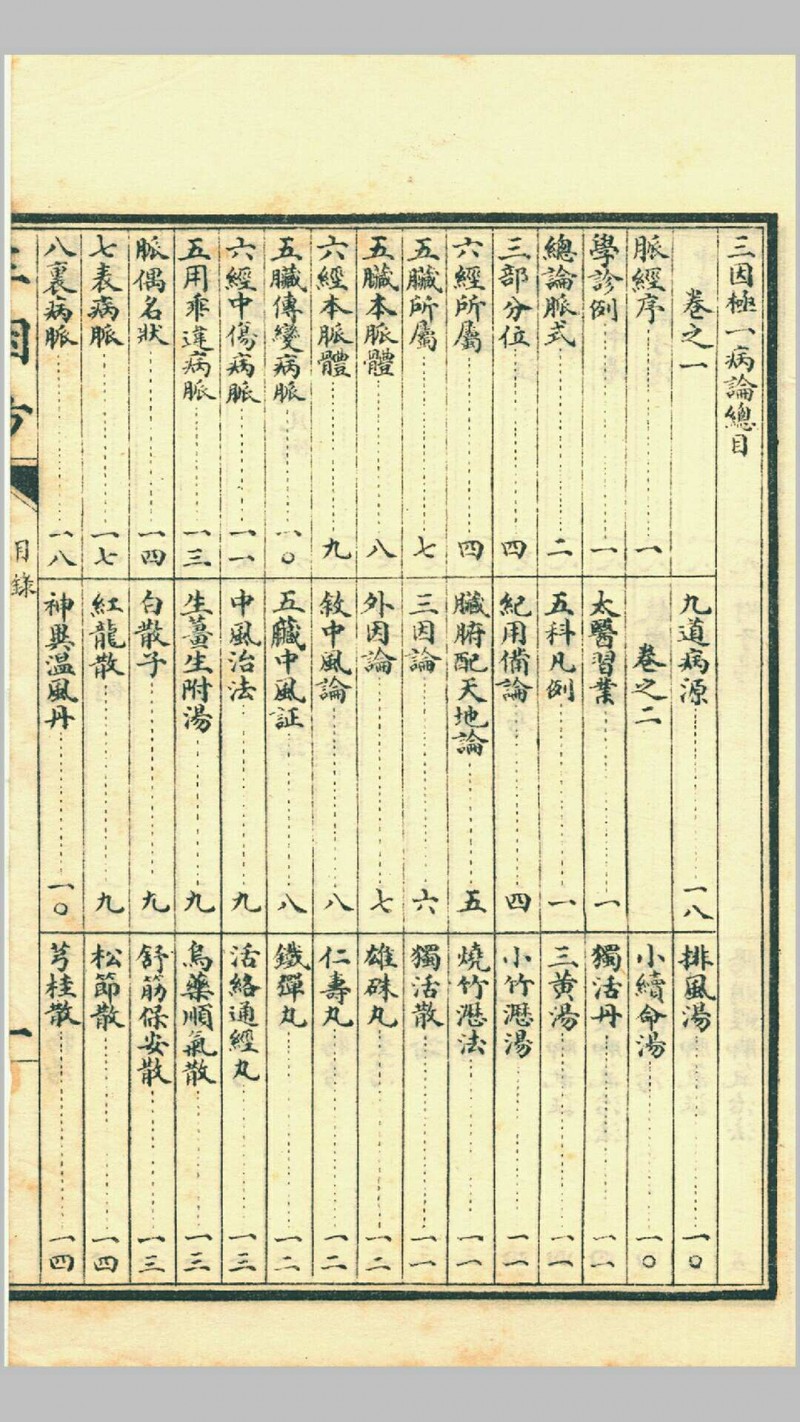 三因極一病論總目
卷之一
脈經序 一
學診例 一
總論脈式 二
三部分位 四
六經所屬 四
五臟所屬 七
五臟本脈體 八
六經本脈體 九
五臟傳變病脈 一〇
六經中傷病脈 一一
五用乖違病脈 一三
脈偶名狀 一四
七表病脈 一七
八裏病脈 一八
九道病源 一八
卷之二
太醫習業 一
五科凡例 一
紀用備論 四
臟腑配天地論 五
三因論 六
外因論 七
敘中風論 八
五臟中風証 八
中風治法 九
生薑生附湯 九
白散子 九
紅龍散 九
神異溫風丹 一〇
排風湯 一〇
小續命湯 一〇
獨活丹 一一
三黄湯 一一
小竹瀝湯 一一
燒竹瀝法 一一
獨活散 一一
雄硃丸 一二
仁壽丸 一二
鐵彈丸 一二
活絡通經丸 一三
烏藥順氣散 一三
舒筋保安散 一三
松節散 一四
芎桂散 一四
三因方
目錄
一